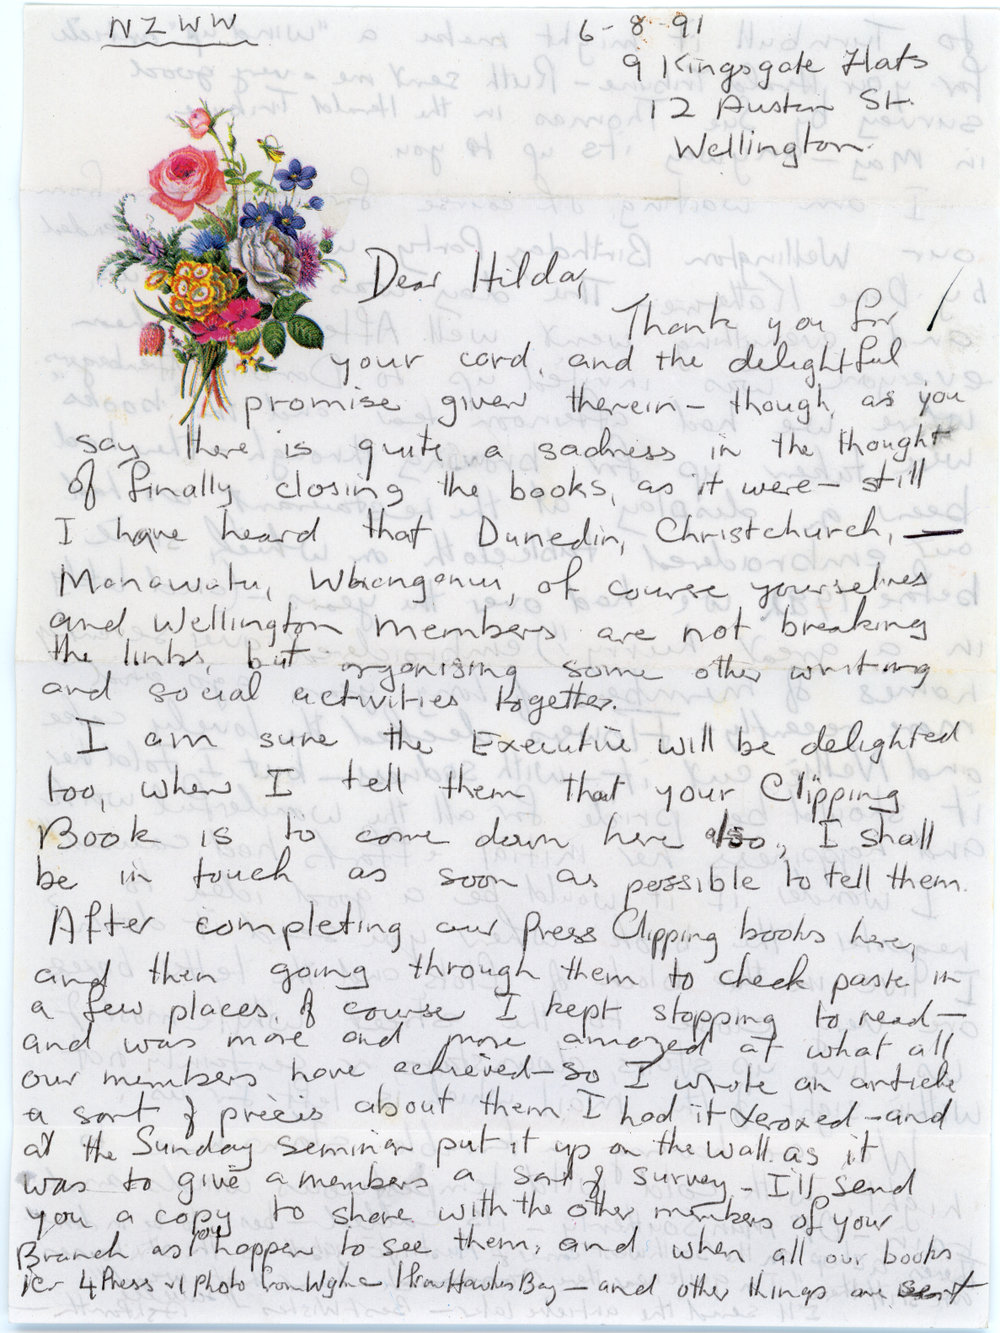 NZWW
6-8-91
9 Kingsgate Flats
12 Austin St.
Wellington.
Dear Hilda,
Thank you for
your card, and the delightful
promise given therein - though, as you
say there is quite a sadness in the thought
of finally closing the books, as it were - still
I have heard that Dunedin, Christchurch, -
Manawatu, Whanganui, of course yourselves
and Wellington members are not breaking
the links, but organising some other writing
and social activities together.
I am sure the Executive will be delighted
too, when I tell them that your Clipping
Book is to come down here also, I shall
be in touch as soon as possible to tell them.
After completing our Press Clipping books here,
and then going through them to check paste in
a few places, of course I kept stopping to read -
and was more and more amazed at what all
our members have achieved - so I wrote an article
a sort of prècis about them. I had it xeroxed - and
at the Sunday Seminar put it up on the wall. as it
was to give a members a sort of survey - I'll send
you a copy to share with the other members of your
Branch as you happen to see them, and when all our books
ier 4 Press + 1 Photo from Wgtn - 1 from Hawkes Bay - and other things are sent